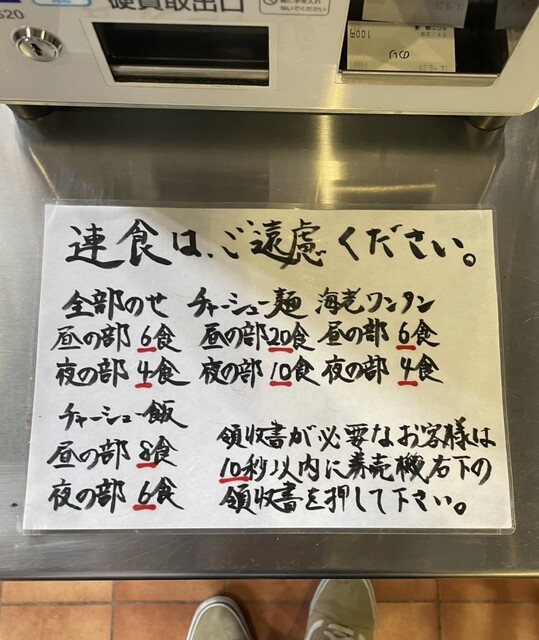 硬貨取出口
520
連食は、ご遠慮ください。
全部のせ チャーシュー麺 海老ワンタン
昼の部 6食 昼の部20食 昼の部 6食
夜の部 4食 夜の部 10食 夜の部 4食
チャーシュー飯
昼の部 8食
夜の部 6食
領収書が必要なお客様は
10秒以内に券売機右下の
領収書を押して下さい。